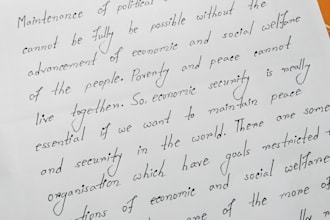 Maintenance of political
cannot be fully be possible without the
advancement of economic and social welfare
of the people. Poverty and peace cannot
live together. So, economic security is really
essential if we want to maintain peace
and security in the world. There are some
organisation which have goals restricted
of economic and social welfare
are of the more of